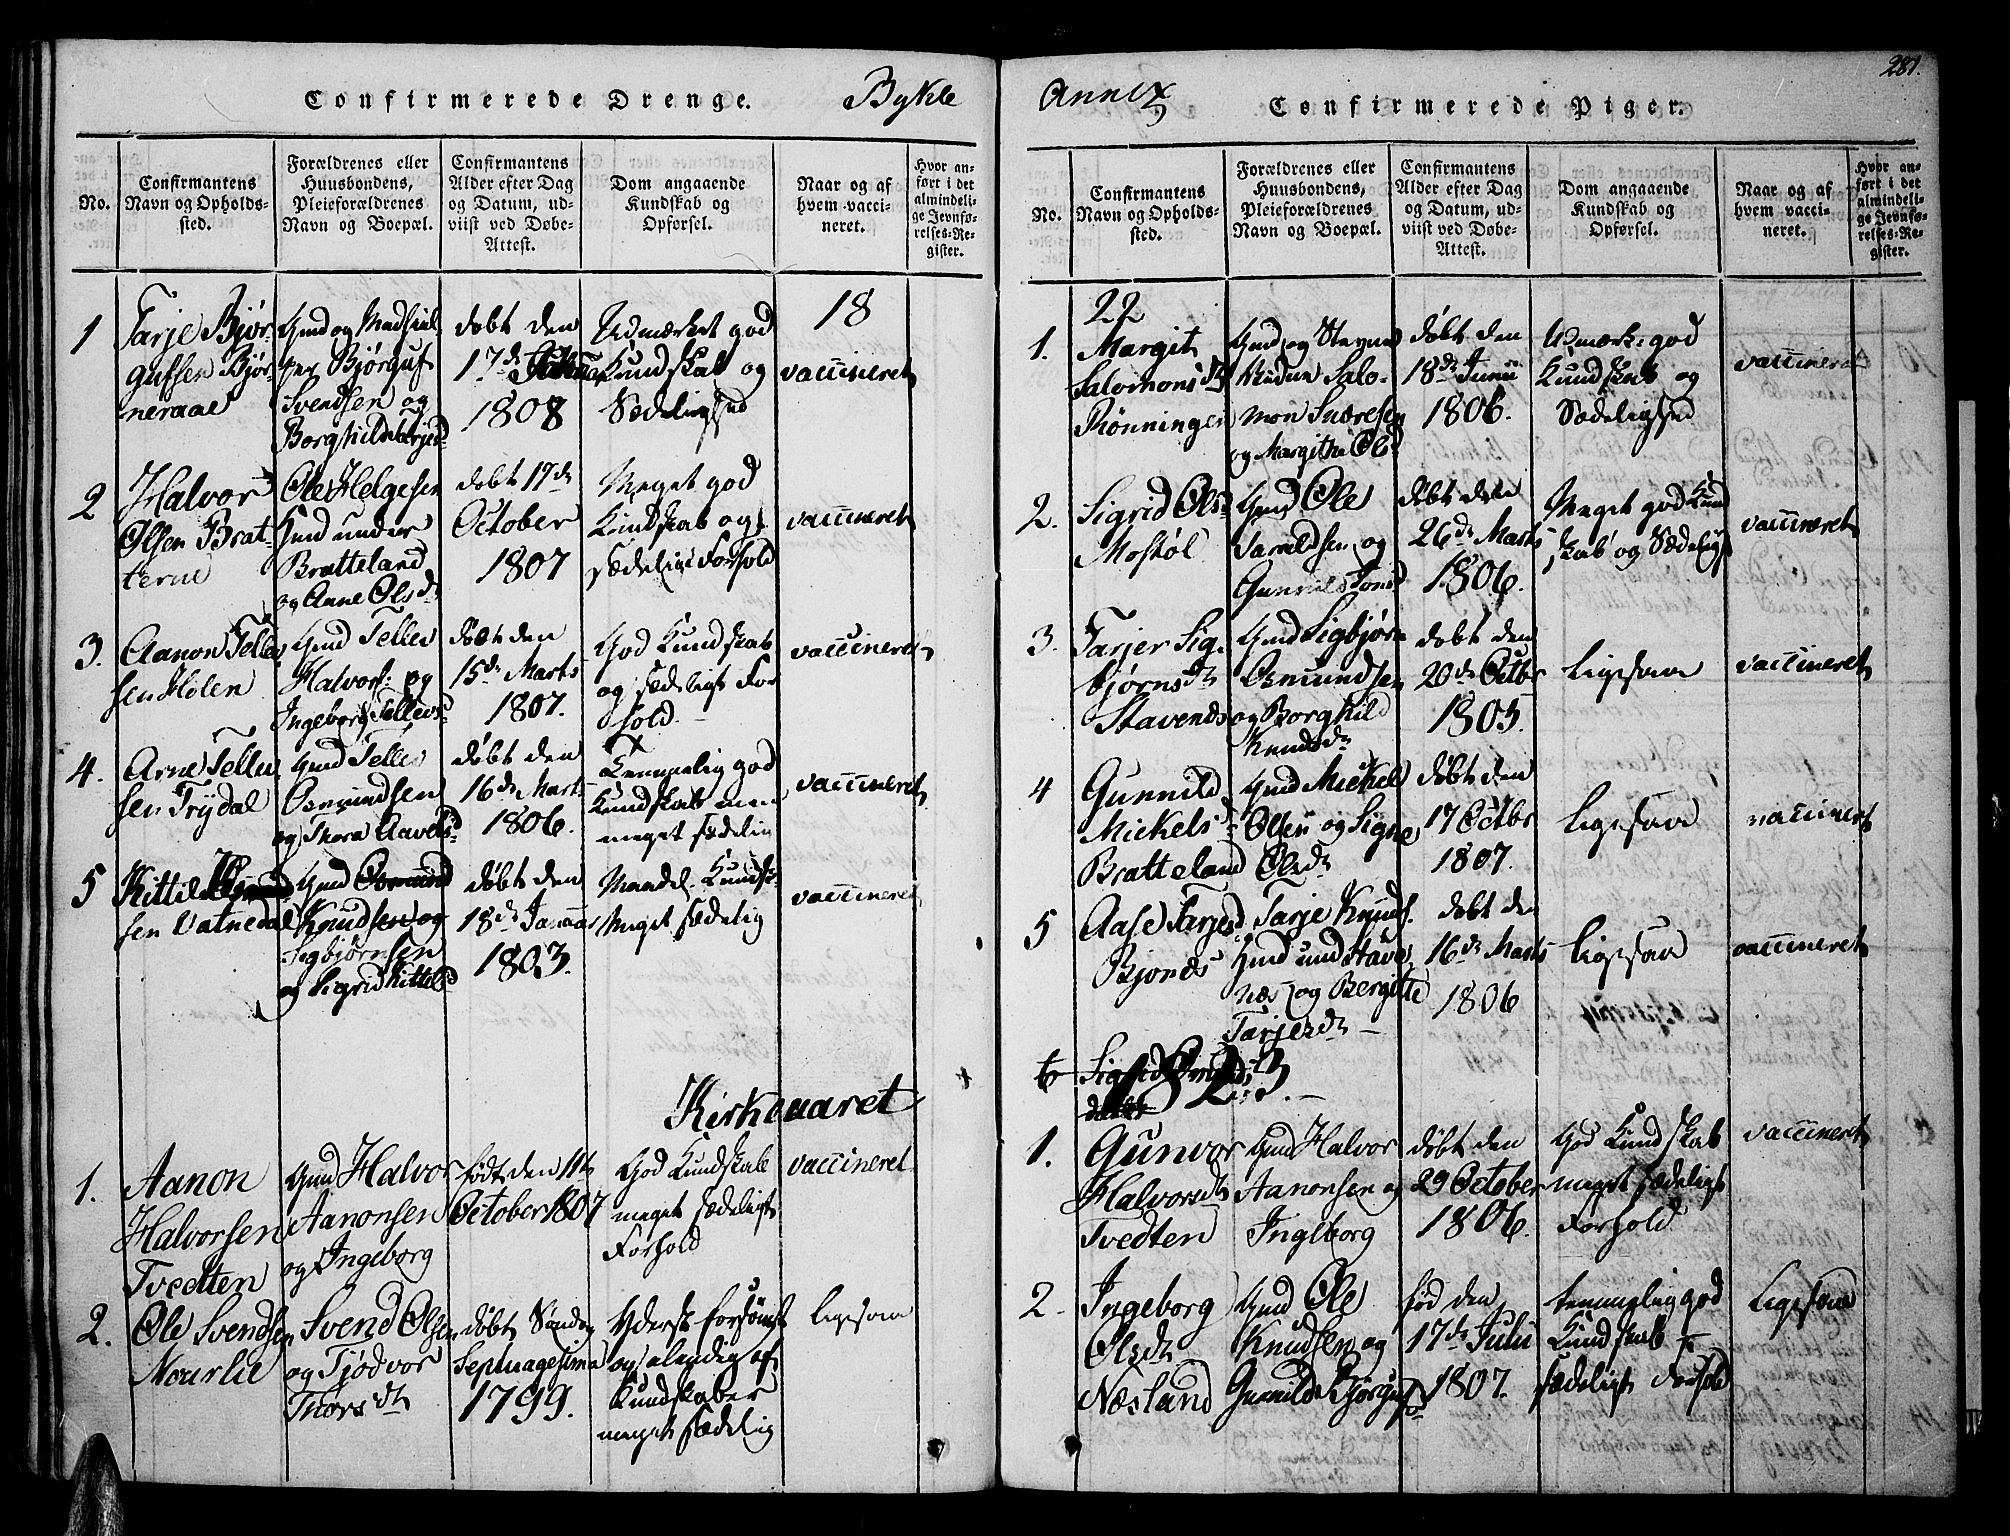 Confirmerede Drenge. Bykle
No.
Confirmantens
Navn og Opholds-
sted.
Forældrenes eller
Huusbondens,
Pleieforældrenes
Navn og Boepæl.
Confirmantens
Alder efter Dag
og Datum, ud-
viist ved Døbe-
Attest.
Dom angaaende
Kundskab og
Opførsel.
Naar og af
hvem vacci-
neret.
Hvor an-
ført i det
almindeli-
ge Jevnfø-
relses-Re-
gister.
18
1
Tarje Bjør-
gufsen Bjør-
neraae
Gmd og
Bjørguf
Svendsen og
Borghild Tarjesd
døbt den
17de
1808
Udmærket god
Kundskab og
Sædelighed
vaccineret
2
Halvor
Olsen Brat-
terne
Ole Helgesen
Hmd under
Bratteland
og Anne Olsdr
døbt 17de
October
1807
Meget god
Kundskab og
sædeligt Forhold
vaccineret
3.
Aanon Tellev
sen Holen
Gmd Tellev
Halvors: og
Ingeborg Tellevsd
døbt den
15de Marts
1807.
God Kundskab
og sædeligt For
hold
vaccineret
4.
Arne Tellev
sen Trydal
Gmd Tellev
Osmundsen
og Thora Aavelsd
døbt den
16de Marts
1806.
Temmelig god
Kundskab men
meget sædelig
vaccineret
5
Kittil
sen Vatnedal
Gmd Osmund
Knudsen og
Sigbjørnsen
og Sigrid Kittelsd
døbt den
18de Januar
1803.
Maadel. Kundsk.
Meget sædelig
vaccineret
Kirke
1.
Aanon
Halvorsen
Tvedten
Gmd Halvor
Aanonsen
og Ingeborg
født den 11te
October 1807
God Kundskab
meget sædeligt
Forhold
vaccineret
2.
Ole Svendsen
Svend Olsen
og Tjødvor
Thorsdtr
døbt Søndag
Septuagesima
1799.
Yderst forsømt
og elendig af
Kundskaber
meget sædelig
ligesaa
281.
Annex Confirmerede Piger.
No.
Confirmantens
Navn og Opholds-
sted.
Forældrenes eller
Huusbondens,
Pleieforældrenes
Navn og Boepæl.
Confirmantens
Alder efter Dag
og Datum, ud-
viist ved Døbe-
Attest.
Dom angaaende
Kundskab og
Opførsel.
Naar og af
hvem vacci-
neret.
Hvor an-
ført i det
almindeli-
ge Jevnfø-
relses-Re-
gister.
22
1.
Margit
Salomonsdtr
Rønningen
Gmd og
Salo-
mon
og Margithe Olsd
døbt den
18de Junii
1806.
Udmærk: god
Kundskab og
Sædelighed
vaccineret
2.
Sigrid Olsd
Mostøl
Gmd Ole
Taraldsen og
Gunvild
døbt den
26de Marts
1806.
Meget god Kund
skab og Sædeligh
vaccineret
3.
Tarjer Sig-
bjørnsdtr
Stavenes
Gmd Sigbjørn
Osmundsen
og Borghild
Knudsdtr
døbt den
20de Octbr
1805.
Ligesaa
vaccineret
4
Gunnild
Mickelsd
Bratteland
Gmd Mickel
Olsen og Signe
Olsdtr
døbt den
17 Octbr
1807.
Ligesaa
vaccineret
5
Aase Tarjesd
Bjones
Tarje Knuds.
Hmd und Stave
næs og Bergitte
Tarjesdtr
døbt den
16de Marts
1806
Ligesaa
vaccineret
6 Sigrid
1823.
1.
Gunvor
Halvorsdtr
Tvedten
Gmd Halvor
Aanonsen og
Ingeborg
døbt den
29 October
1806.
God Kundskab
meget sædeligt
Forhold
vaccineret
2
Ingeborg
Olsdtr
Næsland
Gmd Ole
Knudsen og
Gunnild Bjørgufsd
fød den
17de Julii
1807.
temmelig god
Kundskab
sædeligt Forhold
Ligesaa